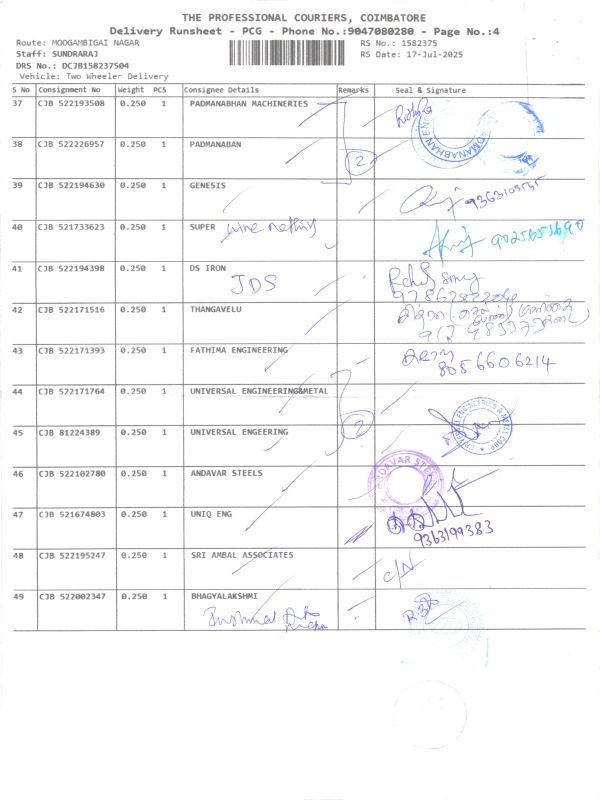 THE PROFESSIONAL COURIERS, COIMBATORE
Delivery Runsheet - PCG - Phone No.:9047080280 - Page No.:4
Route: MOOGAMBIGAI NAGAR
RS No.: 1582375
Staff: SUNDRARAJ
RS Date: 17-Jul-2025
DRS No.: DCJB158237504
Vehicle: Two Wheeler Delivery
S No Consignment No Weight PCS Consignee Details Remarks Seal & Signature
37 CJB 522193508 0.250 1 PADMANABHAN MACHINERIES
38 CJB 522226957 0.250 1 PADMANABAN 2
39 CJB 522194630 0.250 1 GENESIS
40 CJB 521733623 0.250 1 SUPER wire
41 CJB 522194398 0.250 1 DS IRON
JDS
42 CJB 522171516 0.250 1 THANGAVELU
43 CJB 522171393 0.250 1 FATHIMA ENGINEERING
8056606214
44 CJB 522171764 0.250 1 UNIVERSAL ENGINEERING&METAL
45 CJB 81224389 0.250 1 UNIVERSAL ENGEERING 2
46 CJB 522102780 0.250 1 ANDAVAR STEELS ANDAVAR STEE
47 CJB 521674803 0.250 1 UNIQ ENG
9363199383
48 CJB 522195247 0.250 1 SRI AMBAL ASSOCIATES C/N
49 CJB 522002347 0.250 1 BHAGYALAKSHMI